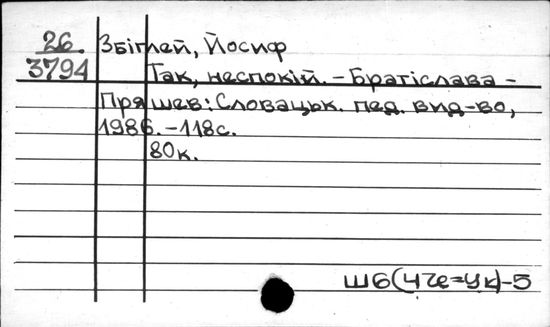 26. Збіглей, Йосиф
3794 Так, неспокій. – Братіслава –
Пряшев: Словацьк. пед. вид-во,
1986. – 118с.
80к.
Ш6(4Че=Ук)-5